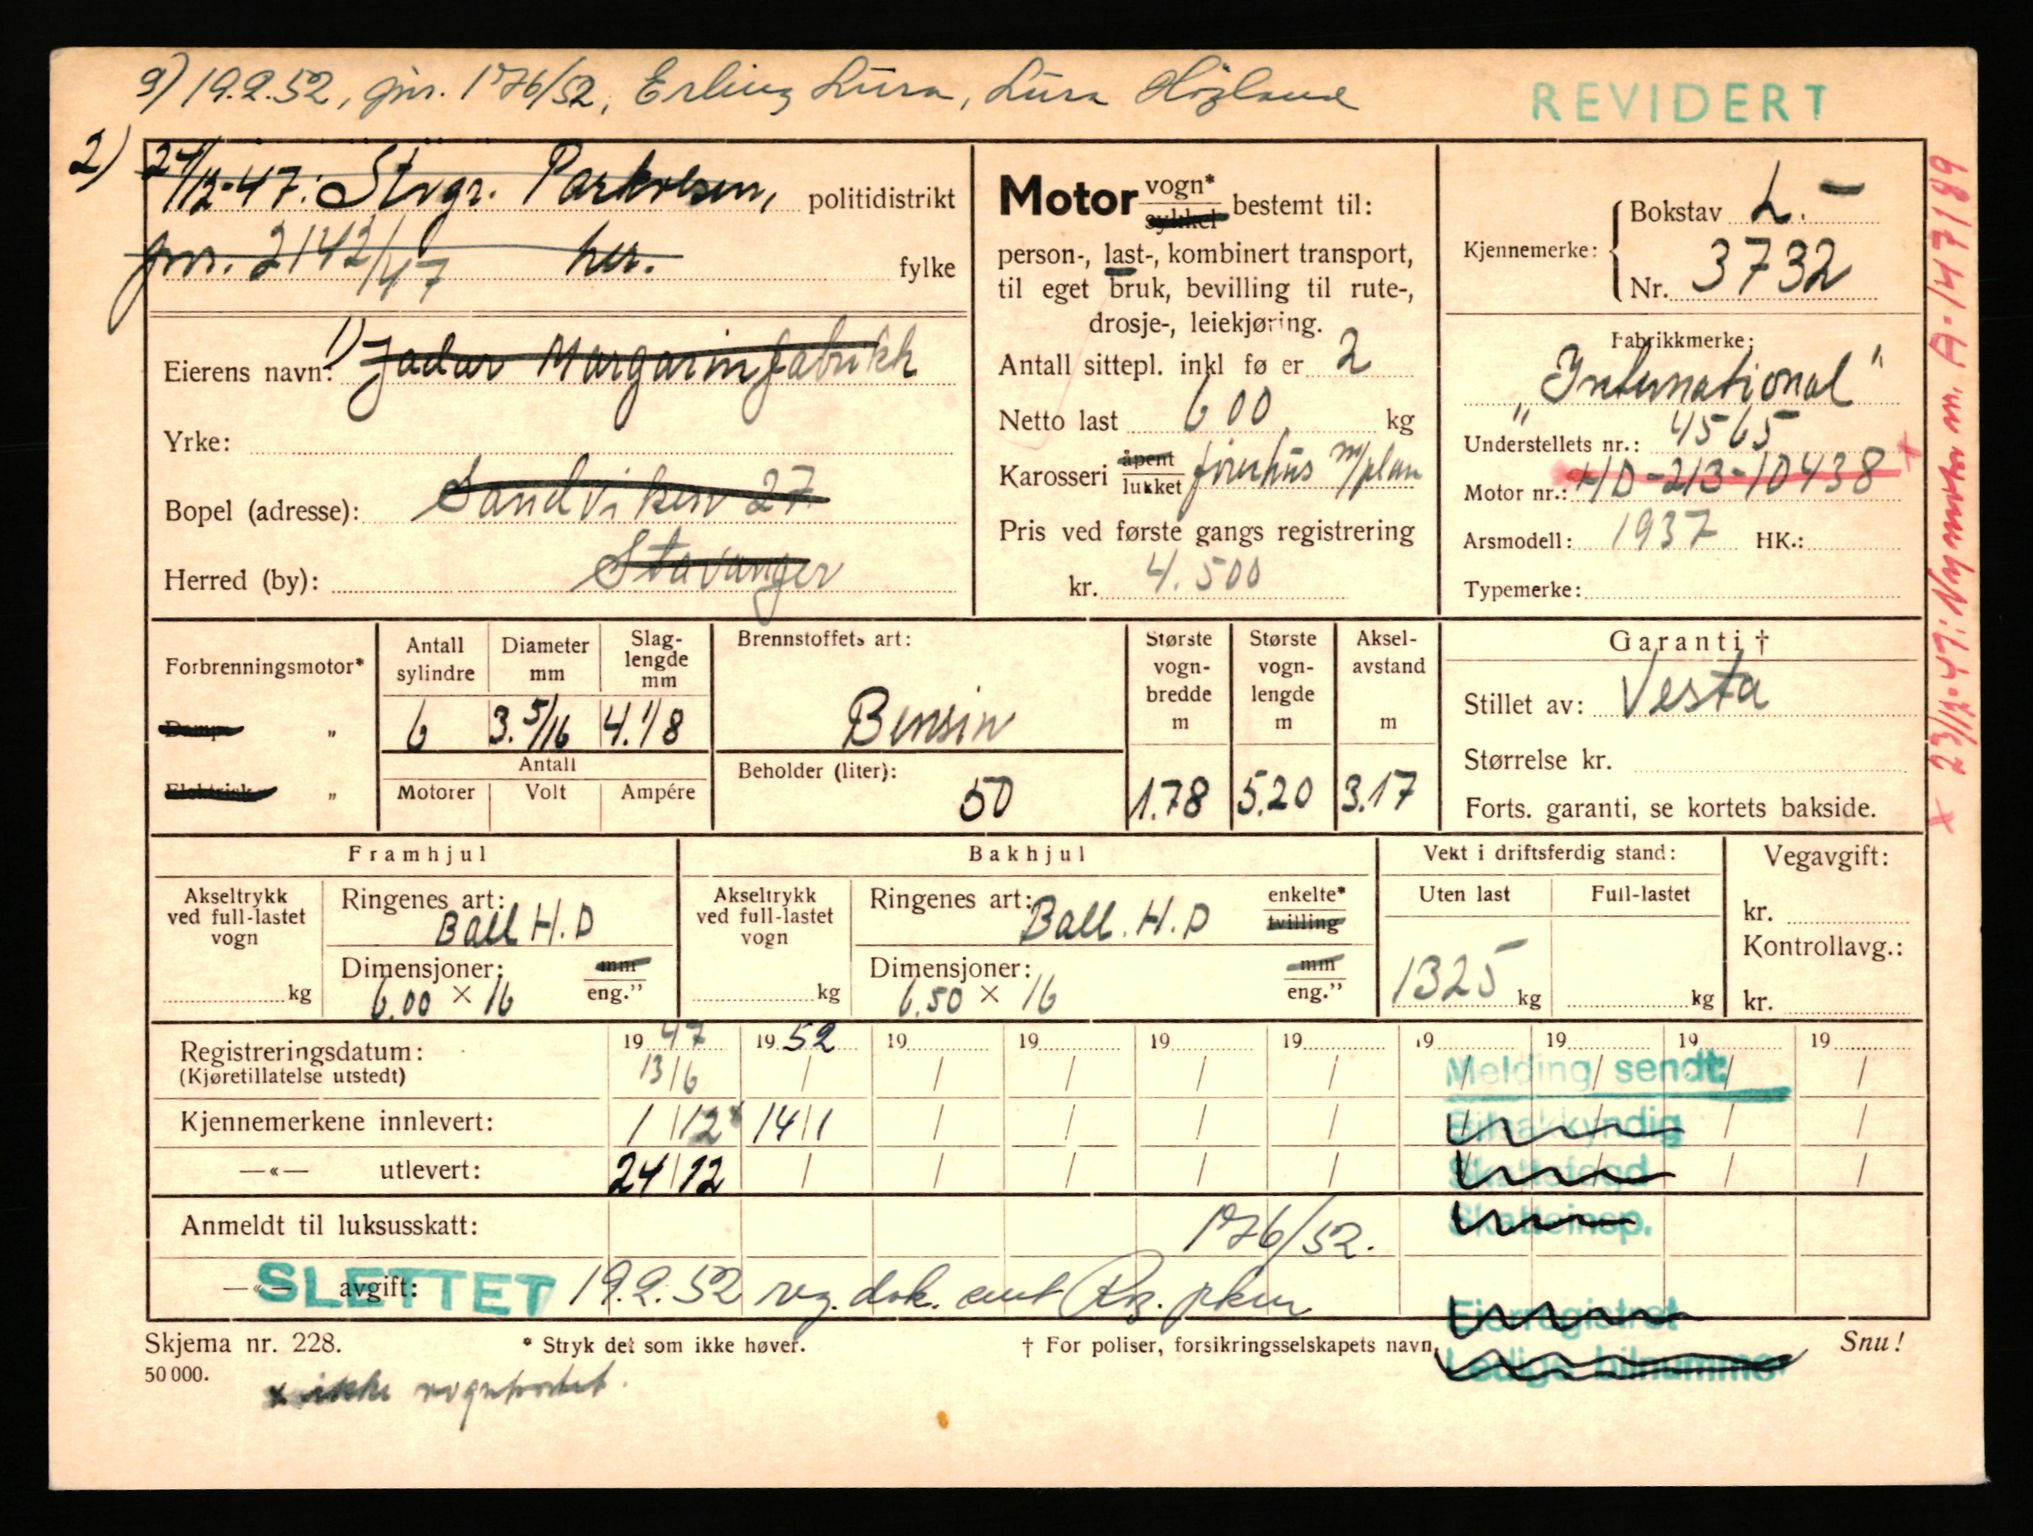 3) 19.2.52, jnr. 176/52, Erling Lura, Lura Høyland
REVIDERT
2) 24/12-47: Stvgr. Parkvesen, politidistrikt
jnr. 2142/47 her. fylke
Eierens navn: 1) Jadar Margarinfabrikk
Yrke:
Bopel (adresse): Sandviken 27
Herred (by): Stavanger
Motor vogn* sykkel bestemt til:
person-, last-, kombinert transport,
til eget bruk, bevilling til rute-,
drosje-, leiekjøring.
Antall sittepl. inkl fører 2
Netto last 600 kg
Karosseri åpent lukket førerhus m/plan
Pris ved første gangs registrering
kr. 4.500
Kjennemerke: Bokstav L.-
Nr. 3732
Fabrikkmerke:
"International"
Understellets nr.: " 4565
Motor nr.: HD-213-10438 x
Årsmodell: 1937 HK.:
Typemerke:
x 23/12-47: Ny motor m. A-147189
Forbrenningsmotor*
Damp- "
Elektrisk "
Antall sylindre 6
Diameter mm 3.5/16
Slaglengde mm 4.1/8
Antall
Motorer Volt Ampére
Brennstoffets art:
Bensin
Beholder (liter): 50
Største vognbredde m 1.78
Største vognlengde m 5.20
Akselavstand m 3.17
Garanti †
Stillet av: Vesta
Størrelse kr.
Forts. garanti, se kortets bakside.
Framhjul
Akseltrykk ved full-lastet vogn
kg
Ringenes art: Ball H.D
Dimensjoner: mm eng."
6.00 × 16
Bakhjul
Akseltrykk ved full-lastet vogn
kg
Ringenes art: Ball. H.D enkelte* tvilling
Dimensjoner: mm eng."
6.50 × 16
Vekt i driftsferdig stand:
Uten last Full-lastet
1325 kg kg
Vegavgift:
kr.
Kontrollavg.:
kr.
Registreringsdatum: 19 47 19 52 19 19 19 19 19 19 19 19
(Kjøretillatelse utstedt) 13/6 / / / / / / / / /
Kjennemerkene innlevert: 1/12x 14/1 / / / / / / / /
—«— utlevert: 24/12 / / / / / / / / /
Melding sendt:
Bilsakkyndig
Skattefogd
Skatteinsp.
Eierregistret
Ledige bilnumme
Anmeldt til luksusskatt: 176/52.
—«— avgift: SLETTET 19.2.52 reg. dok. omt
Skjema nr. 228. * Stryk det som ikke høver. † For poliser, forsikringsselskapets navn. Snu!
50 000.
x ikke vognkortet.